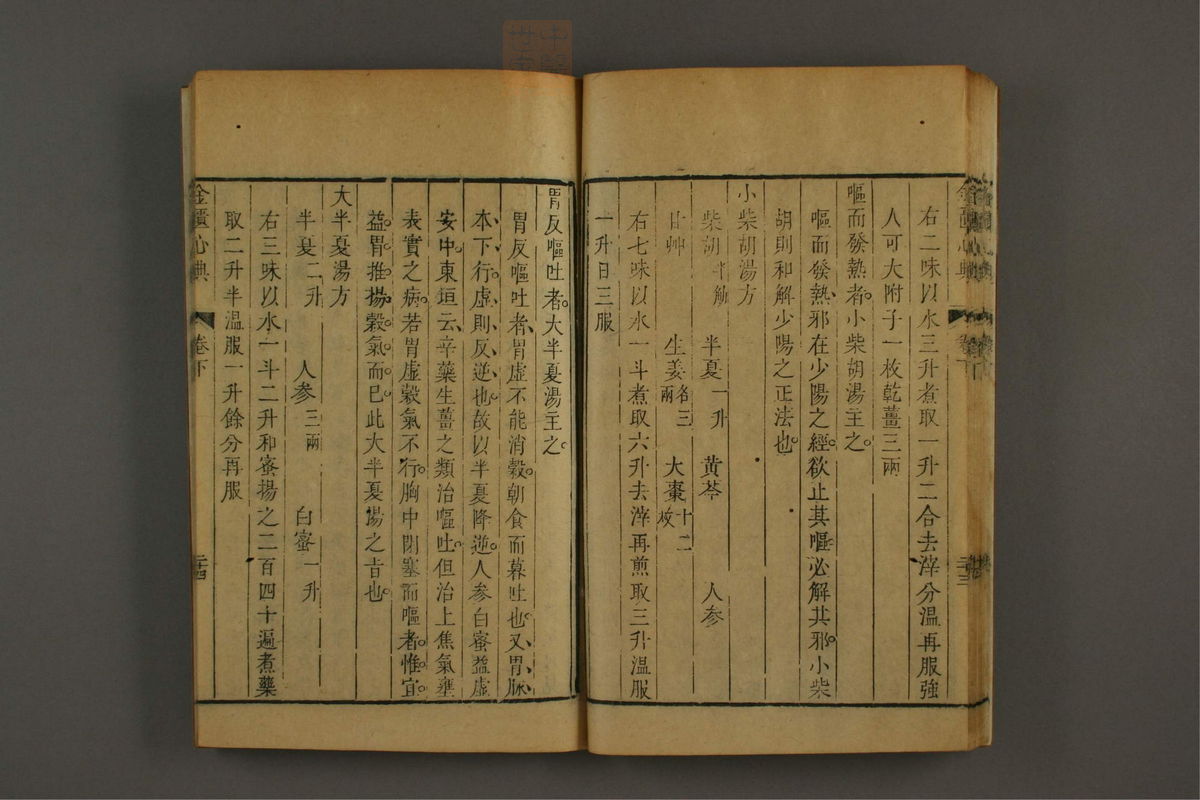 右二味以水三升煮取一升二合去滓分溫再服強
人可大附子一枚乾薑三兩
嘔而發熱者小柴胡湯主之
嘔而發熱邪在少陽之經欲止其嘔必解其邪小柴
胡則和解少陽之正法也
小柴胡湯方
柴胡半觔 半夏一升 黃芩 人參
甘艸 生姜各三兩 大棗十二枚
右七味以水一斗煮取六升去滓再煎取三升溫服
一升日三服
胃反嘔吐者大半夏湯主之
胃反嘔吐者胃虛不能消穀朝食而暮吐也又胃脉
本下行虛則反逆也故以半夏降逆人參白蜜益虛
安中東垣云辛藥生薑之類治嘔吐但治上焦氣壅
表實之病若胃虛穀氣不行胸中閉塞而嘔者惟宜
益胃推揚穀氣而已此大半夏湯之旨也
大半夏湯方
半夏二升 人參三兩 白蜜一升
右三味以水一斗二升和蜜揚之二百四十遍煮藥
取二升半溫服一升餘分再服
金匱心典 卷下 二十四